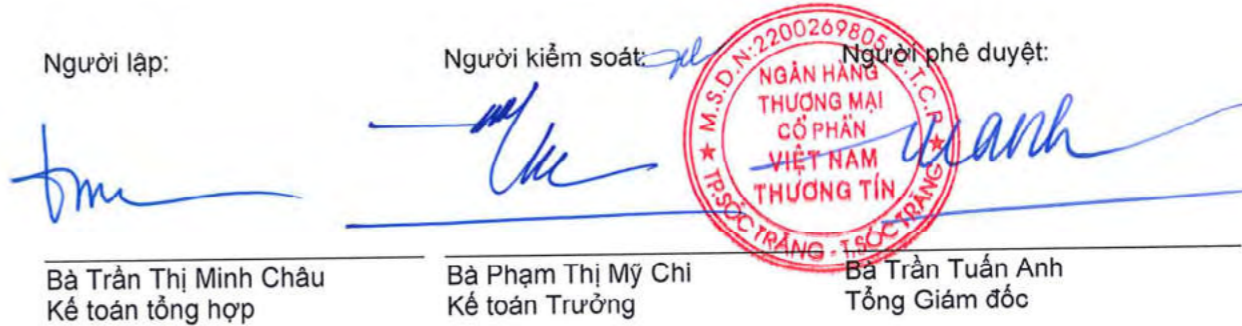 Người lập:
Người kiểm soát:
Người phê duyệt:
M.S.D.N:2200269805-C.T.C.P
NGÂN HÀNG
THƯƠNG MẠI
CỔ PHẦN
VIỆT NAM
THƯƠNG TÍN
TP.SÓC TRĂNG - T.SÓC TRĂNG
Bà Trần Thị Minh Châu
Kế toán tổng hợp
Bà Phạm Thị Mỹ Chi
Kế toán Trưởng
Bà Trần Tuấn Anh
Tổng Giám đốc